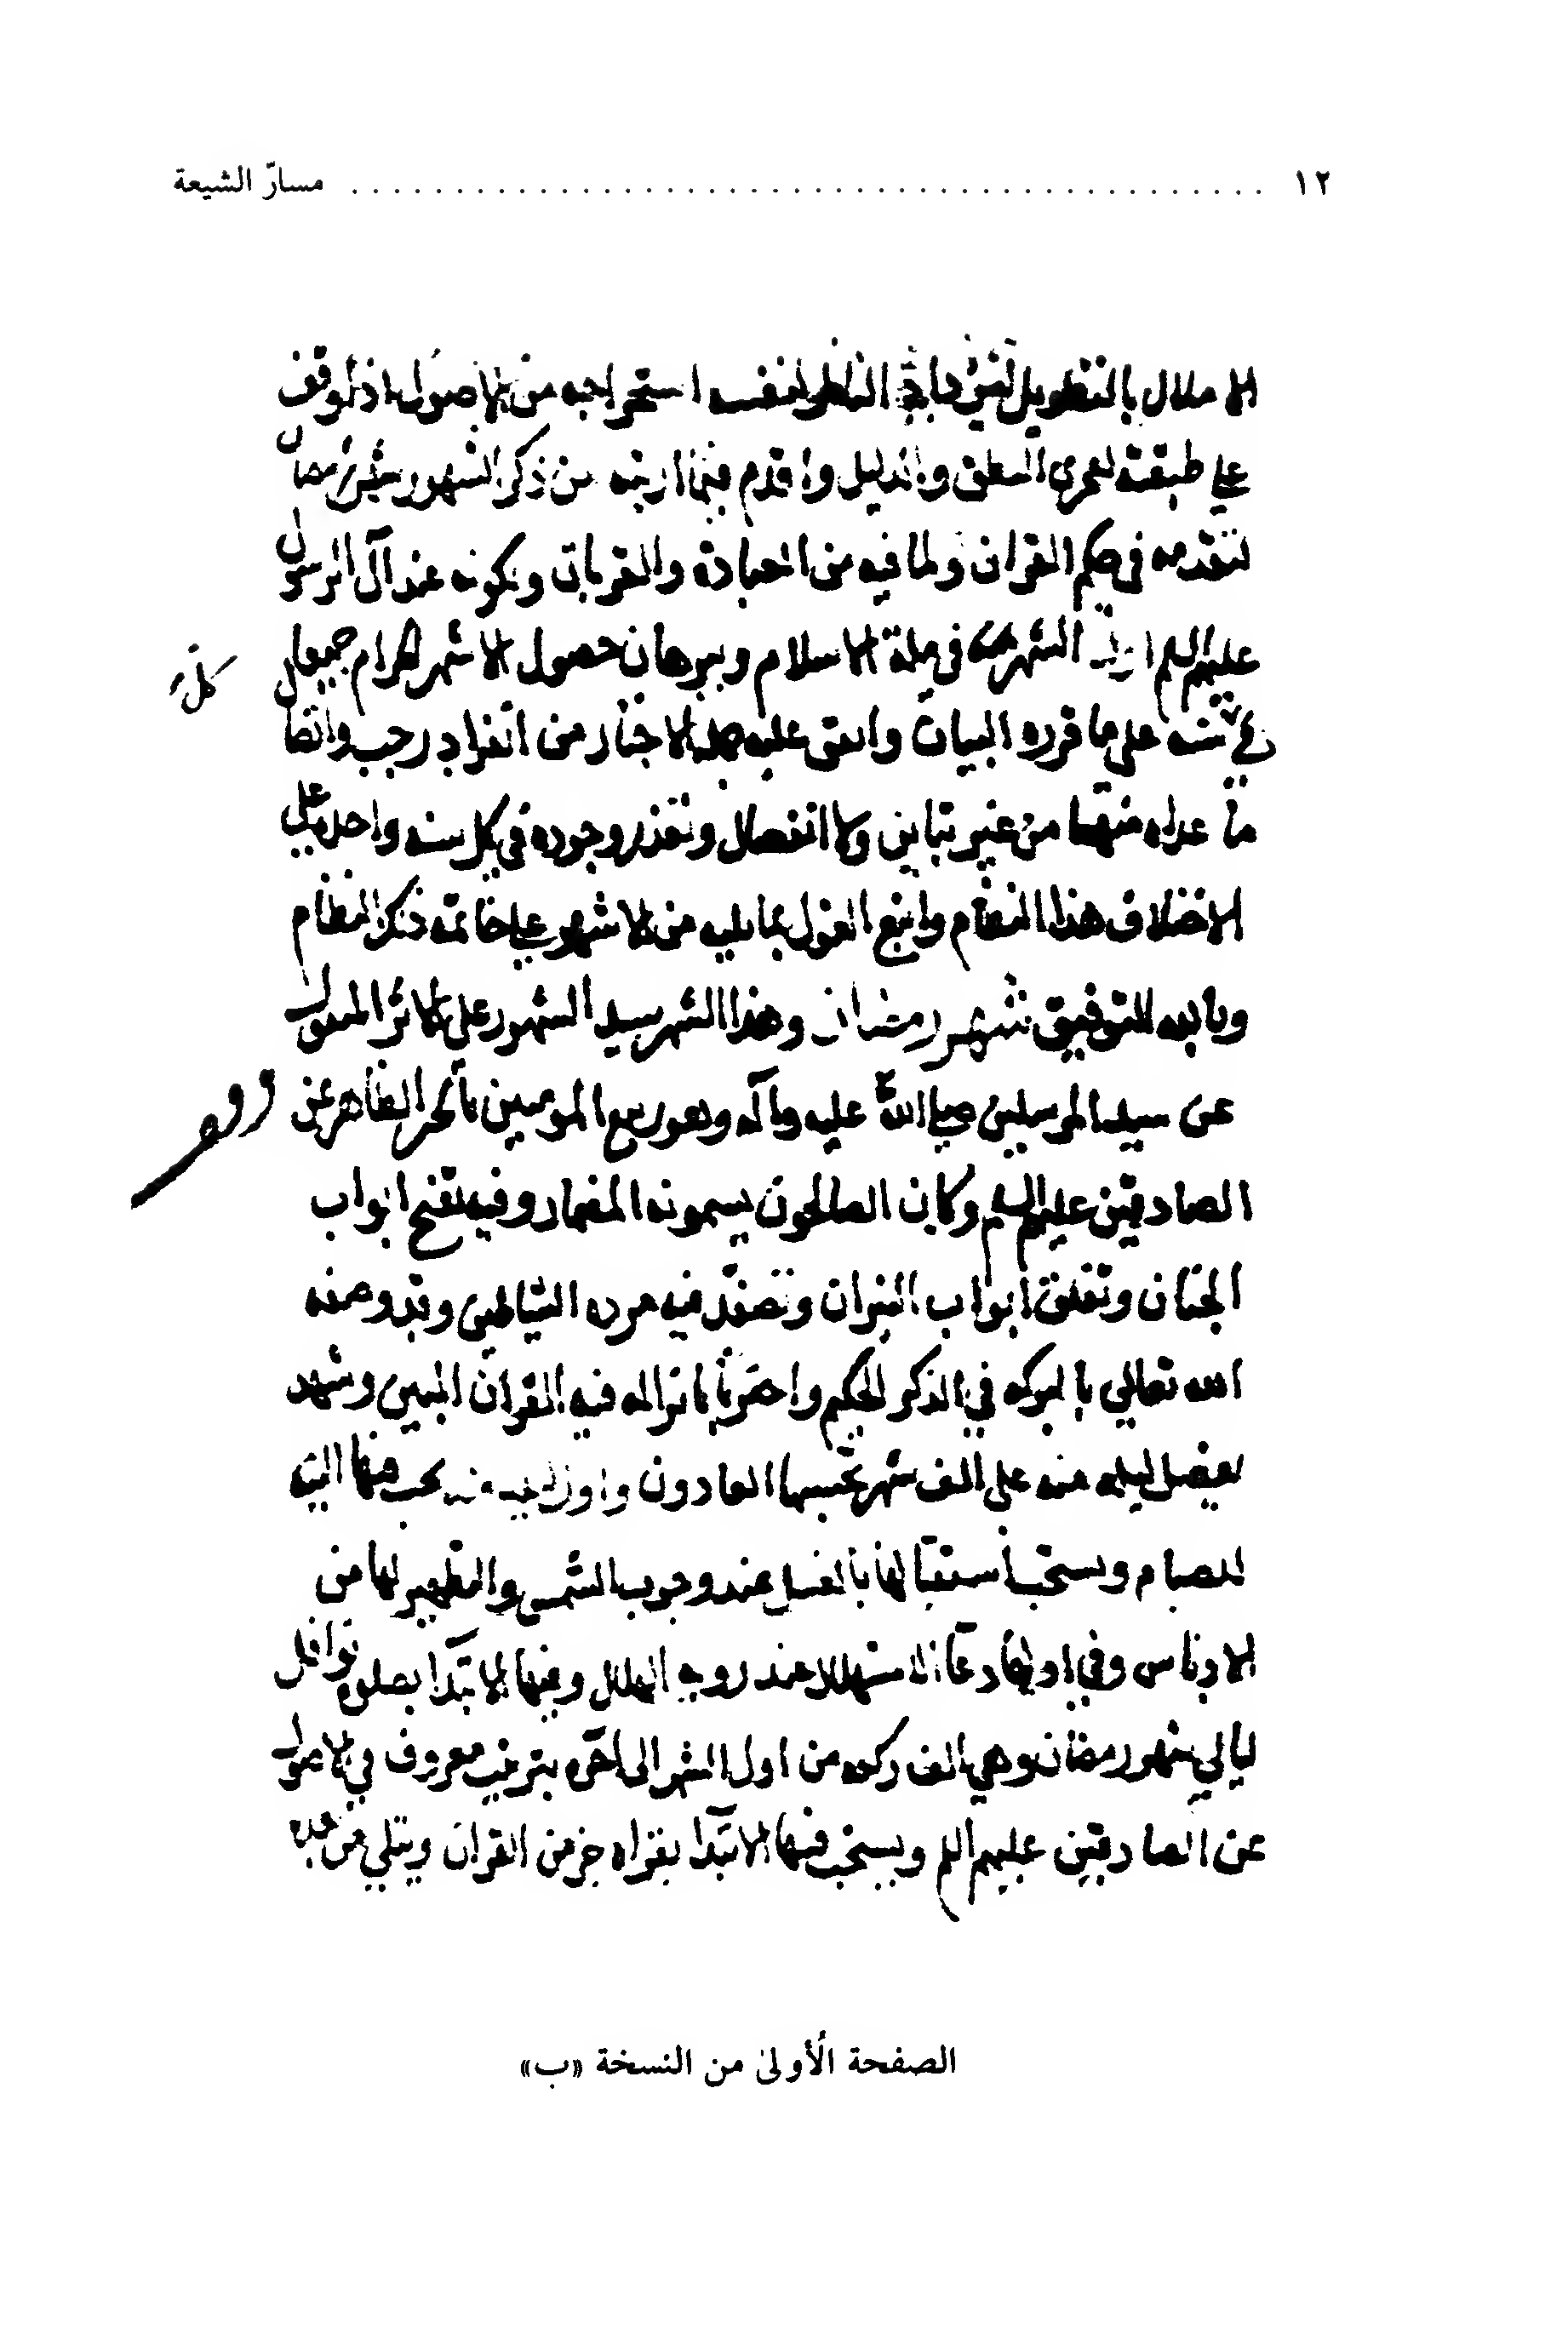 ١٢ ........................................ مسارّ الشيعة
الاملال بالتطويل الناظر لنفسه استخراجه من الاصول اذ الوقف
علي طبقته لعمري والدليل واقدم فيما ارتبه من ذكر الشهور شهر رمضان
لتقدمه في حكم القران ولما فيه من العبادة والقربات ولكونه عند آل الرسول
عليهم السلم اول الشهور في ملة الاسلام وبرهان حصول الاشهر الحرم جميعها
في سنه علي ما قرره البيان واتفق عليه الاخبار من انفراد رجب واتصال
ما عداه منها من غير تباين ولا انفصال وتعذر وجوده في كل سنه واحده علي
الاختلاف هذا المقام واتبع القول بما يليه من الاشهر علي خاتمه ذلك النظام
كله
وبالله التوفيق شهر رمضان وهذا الشهر سيد الشهور علي الاثر المنقول
عن سيد المرسلين صلي الله عليه وآله وهو ربيع المومنين بالخبر الظاهر عن
الصادقين عليهم السلم وكان الصالحون يسمونه المضمار وفيه تفتح ابواب
الجنان وتغلق ابواب النيران وتصفد فيه مرده الشياطين وقد وصفه
الله تعالي بالبركه في الذكر الحكيم واخبر بانزاله فيه القران المبين وشهد
بفضل ليله منه علي الف شهر يحسبها العادون واول ليله منه يجب فيها النية
للصيام ويستحب استقبالها بالغسل عند وجوب الشمس والتطهير لها من
الادناس وفي اولها دعا الاستهلال عند رويه الهلال وفيها الابتدا بصلوة نوافل
ليالي شهر رمضان وهي الف ركعه من اول الشهر الي اخره بترتيب معروف في الاصول
عن الصادقين عليهم السلم ويستحب فيها الابتدا بقراه جز من القران ويتلي من بعده
الصفحة الأولىٰ من النسخة «ب»